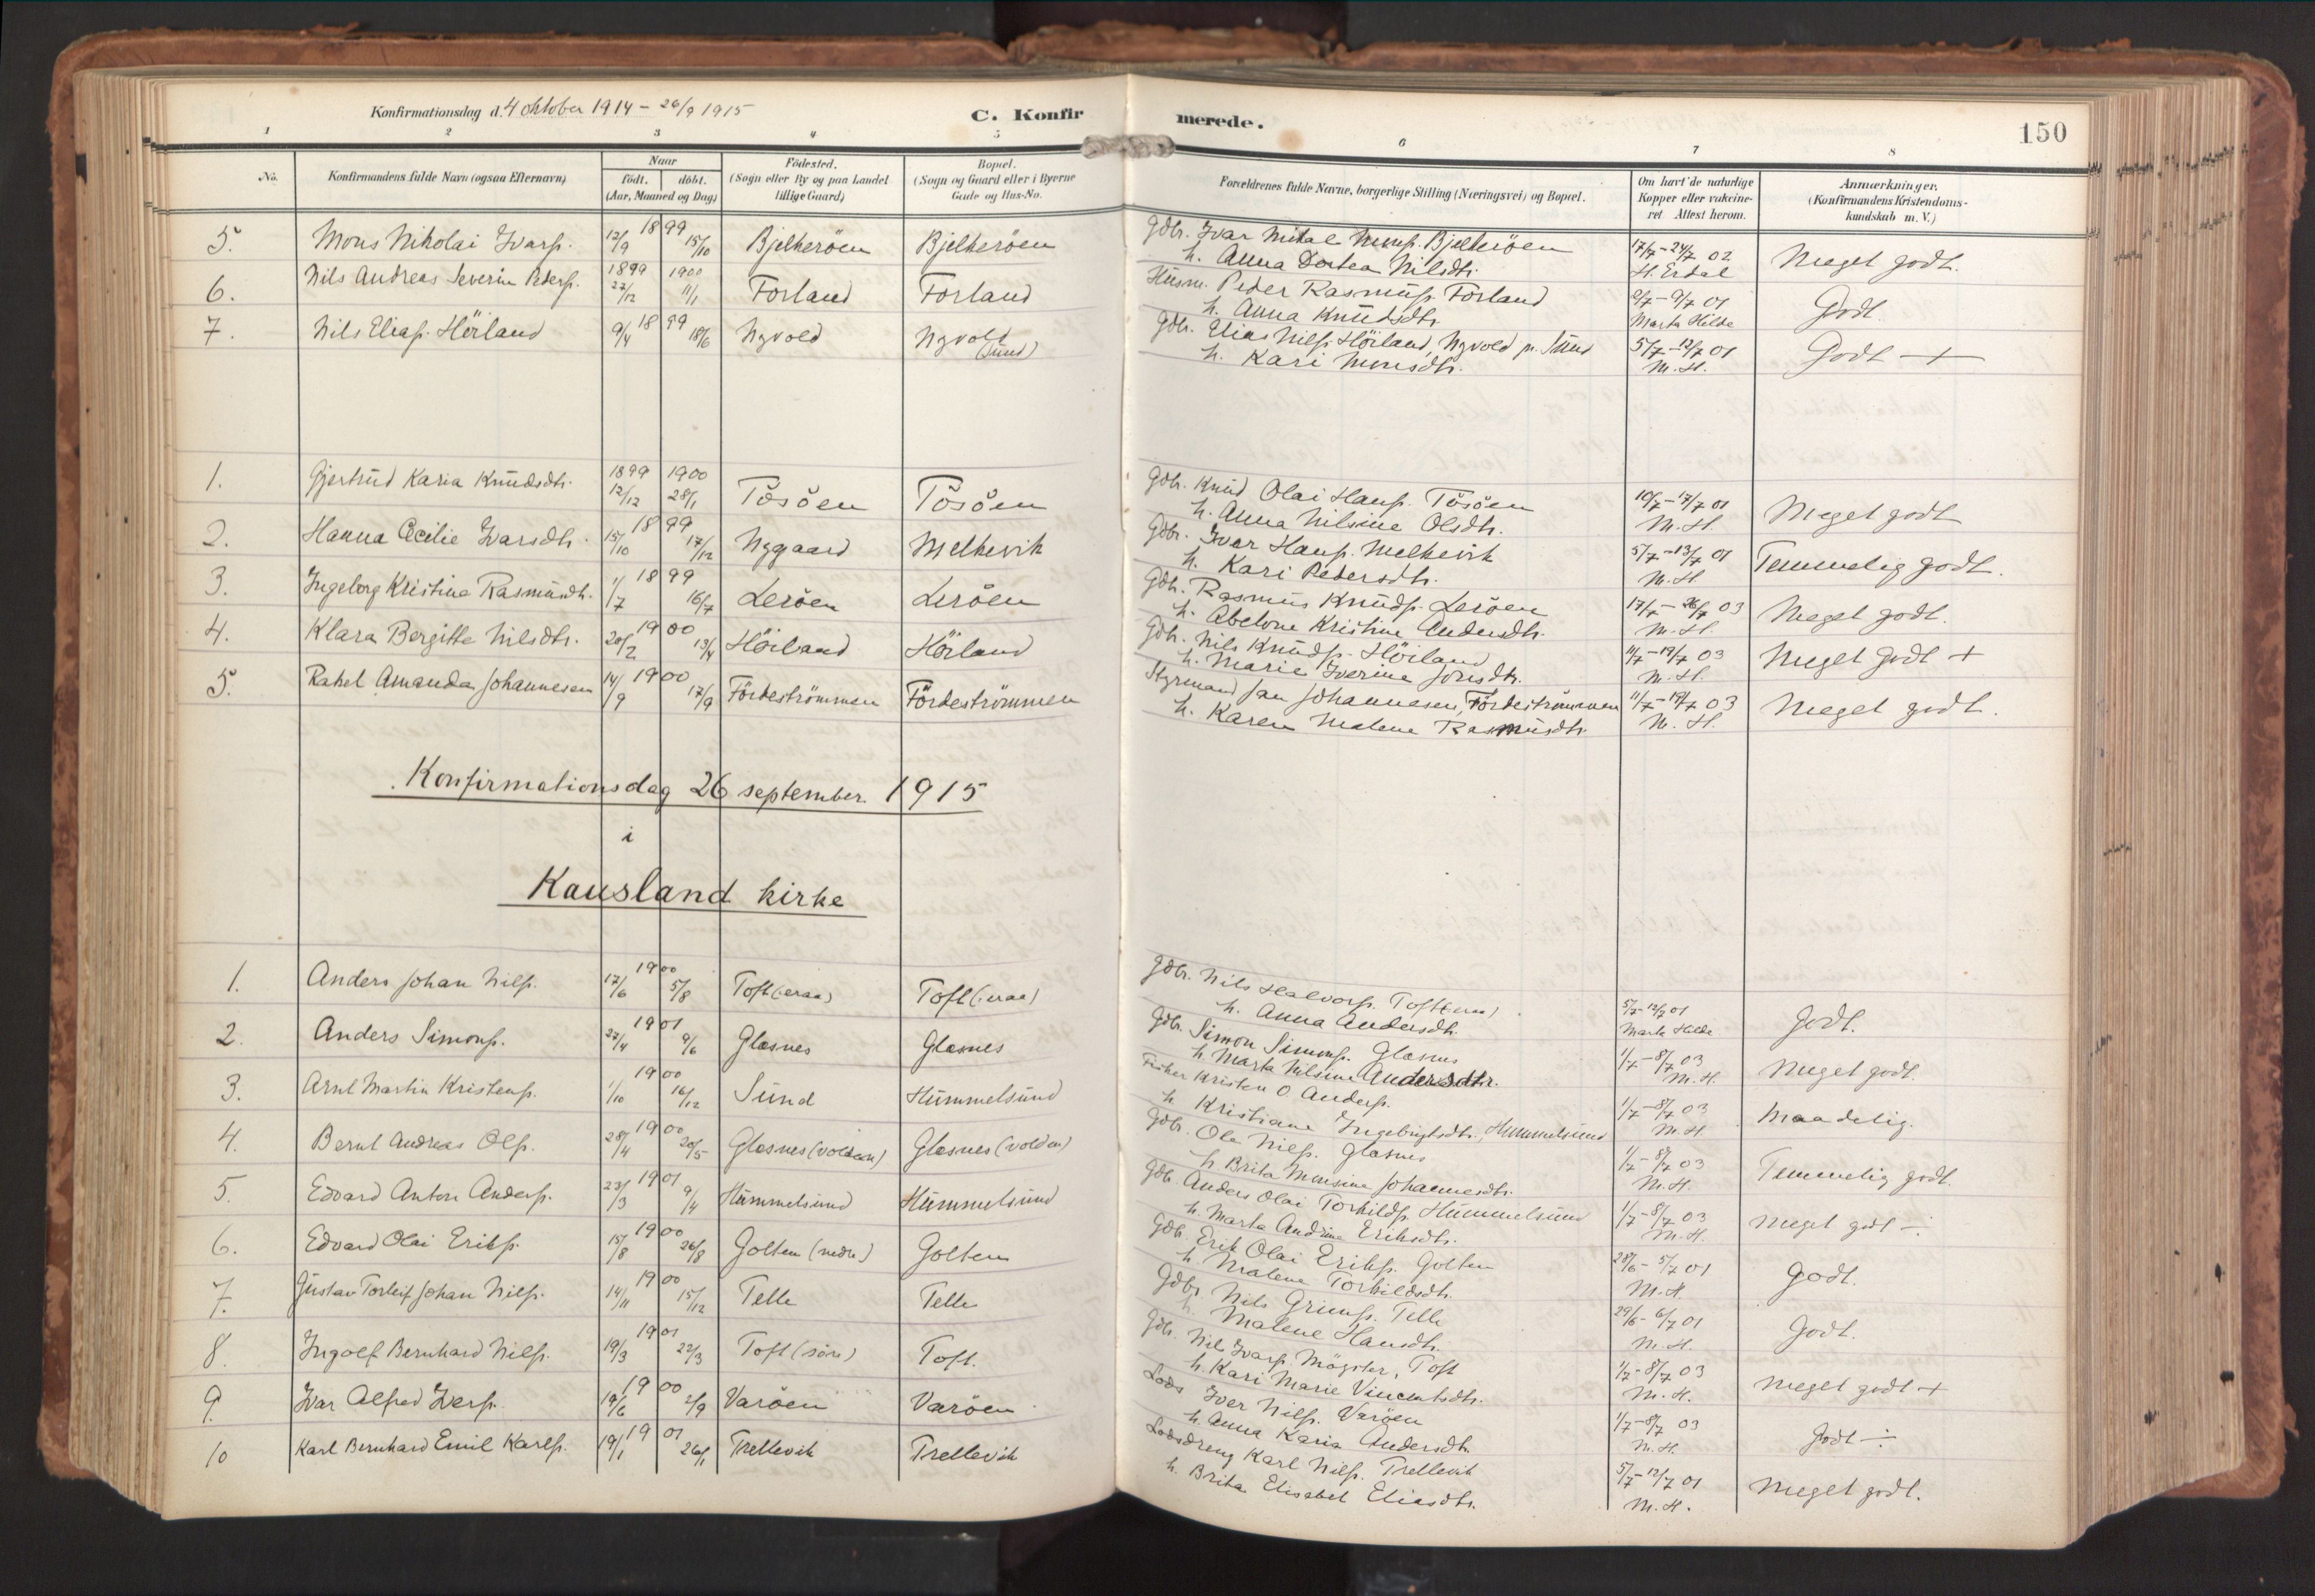 Konfirmationsdag d. 4 Oktober 1914 – 26/9 1915
C. Konfirmerede.
150
1 2 3 4 5 6 7 8
No.
Konfirmandens fulde Navn (ogsaa Efternavn)
Naar
födt. döbt.
(Aar, Maaned og Dag)
Födested.
(Sogn eller By og paa Landet
tillige Gaard)
Bopæl.
(Sogn og Gaard eller i Byerne
Gade og Hus-No.
Forældrenes fulde Navne, borgerlige Stilling (Næringsvei) og Bopæl.
Om havt de naturlige
Kopper eller vakcine-
ret Attest herom.
Anmærkninger.
(Konfirmandens Kristendoms-
kundskab m. V.)
5. Mons Nikolai Ivarss. 12/9 1899 15/10 Bjelkeröen Bjelkeröen Gdbr. Ivar Mikal Monss. Bjelkeröen 17/7 – 24/7 02 Meget godt.
h. Anna Dortea Nilsdtr. H. Erdal
6. Nils Andreas Severin Pederss. 1899 22/12 1900 11/1 Forland Forland Husm. Peder Rasmuss. Forland 2/7 – 9/7 01 Godt.
h. Anna Knudsdtr. Marta Hilde
7. Nils Eliass. Höiland 9/4 1899 18/6 Nyvold Nyvold (Sund) Gdbr. Elias Nilss. Höiland, Nyvold p. Sund 5/7 – 12/7 01 Godt – +
h. Kari Monsdtr. M. H.
1. Gjertrud Karia Knudsdtr. 1899 12/12 1900 28/1 Tösöen Tösöen Gdbr. Knud Olai Hanss. Tösöen 10/7 – 17/7 01 Meget godt
h. Anna Nilsine Olsdtr. M. H.
2. Hanna Cecilie Ivarsdtr. 15/10 1899 17/12 Nygaard Melkevik Gdbr. Ivar Hanss. Melkevik 5/7 – 13/7 01 Temmelig godt.
h. Kari Pedersdtr. M. H.
3. Ingeborg Kristine Rasmusdtr. 1/7 1899 16/7 Leröen Leröen Gdbr. Rasmus Knudss. Leröen 17/7 – 26/7 03 Meget godt.
h. Abelone Kristine Andersdtr. M. H.
4. Klara Bergitte Nilsdtr. 20/2 1900 13/4 Höiland Höiland Gdbr. Nils Knudss. Höiland 11/7 – 19/7 03 Meget godt +
h. Marie Iverine Jonsdtr. M. H.
5. Rakel Amanda Johannesen 14/9 1900 17/9 Fördeströmmen Fördeströmmen Styrmand Jan Johannesen, Fördeströmmen 11/7 – 19/7 03 Meget godt.
h. Karen Malene Rasmusdtr. M. H.
Konfirmationsdag 26 september 1915
i
Kausland kirke
1. Anders Johan Nilss. 17/6 1900 5/8 Toft Toft Gdbr. Nils Halvorss. Toft 5/7 – 12/7 01 Godt.
h. Anna Andersdtr. Marta Hilde
2. Anders Simonss. 27/4 1901 9/6 Glæsnes Glæsnes Gdbr. Simon Simonss. Glæsnes 1/7 – 8/7 03 Meget godt.
h. Marta Nilsine Andersdtr. M. H.
3. Arnt Martin Kristenss. 1/10 1900 16/12 Sund Hummelsund Fisker Kristen O. Anderss. 1/7 – 8/7 03 Maadelig.
h. Kristiane Ingebrigtsdtr., Hummelsund M. H.
4. Bernt Andreas Olss. 28/4 1900 20/5 Glæsnes (volden) Glæsnes (volden) Gdbr. Ole Nilss. Glæsnes 1/7 – 8/7 03 Temmelig godt.
h. Brita Monsine Johannesdtr. M. H.
5. Edvard Anton Anderss. 23/3 1901 9/4 Hummelsund Hummelsund Gdbr. Anders Olai Torkildss. Hummelsund 1/7 – 8/7 03 Meget godt ÷
h. Marta Andrine Eriksdtr. M. H.
6. Edvard Olai Erikss. 15/8 1900 26/8 Golten (nedre) Golten Gdbr. Erik Olai Erikss. Golten 28/6 – 5/7 01 Godt.
h. Malene Torkildsdtr. M. H.
7. Gustav Torleif Johan Nilss. 14/11 1900 15/12 Telle Telle Gdbr. Nils Grimss. Telle 29/6 – 6/7 01 Godt.
h. Malene Hansdtr. M. H.
8. Ingolf Bernhard Nilss. 19/3 1901 22/3 Toft (söre) Toft. Gdbr. Nils Ivarss. Mögster, Toft 1/7 – 8/7 03 Meget godt +
h. Kari Marie Vincentsdtr. M. H.
9. Ivar Alfred Iverss. 19/6 1900 2/9 Varöen Varöen Lods Iver Nilss. Varöen 1/7 – 8/7 03 Godt ÷
h. Anna Karia Andersdtr. M. H.
10 Karl Bernhard Emil Karlss. 19/1 1901 26/1 Trellevik Trellevik Lodsdreng Karl Nilss. Trellevik 5/7 – 12/7 01 Meget godt.
h. Brita Elisabet Eliasdtr. M. H.